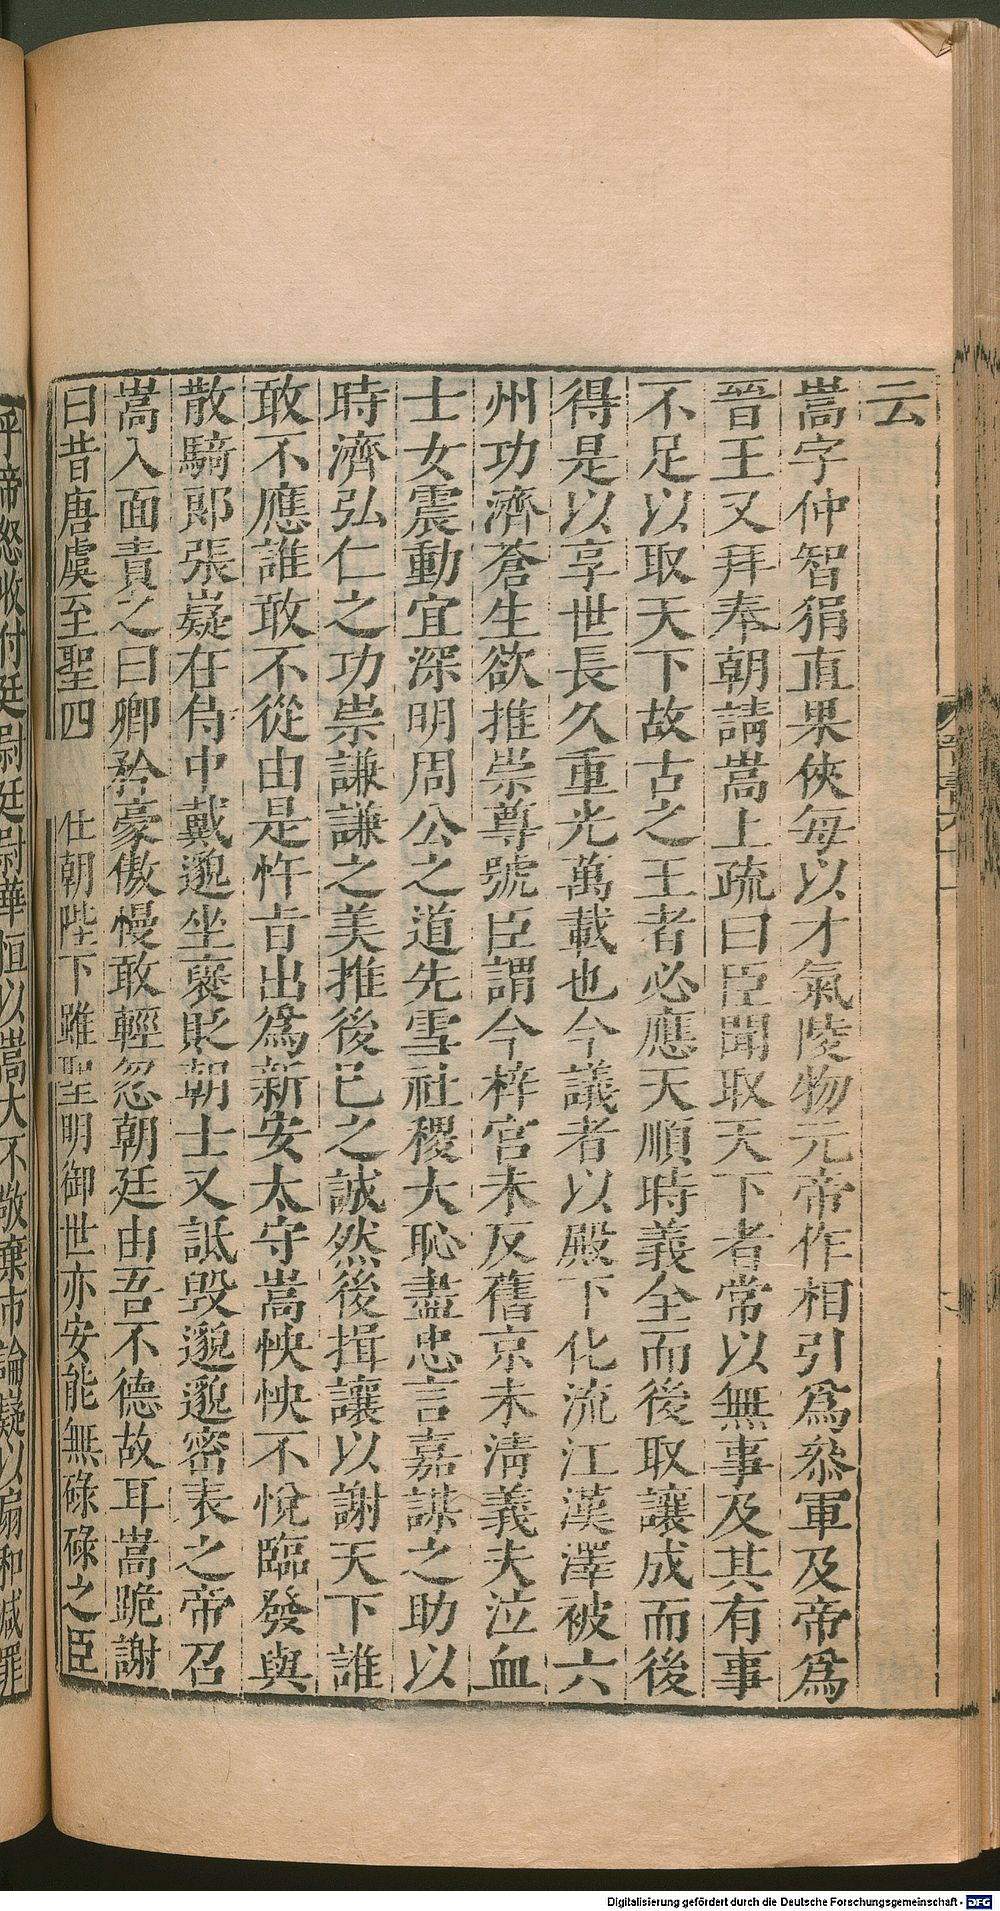 云
嵩字仲智狷直果俠每以才氣陵物元帝作相引爲叅軍及帝爲
晉王又拜奉朝請嵩上疏曰臣聞取天下者常以無事及其有事
不足以取天下故古之王者必應天順時義全而後取讓成而後
得是以享世長久重光萬載也今議者以殿下化流江漢澤被六
州功濟蒼生欲推崇尊號臣謂今梓宮未反舊京未淸義夫泣血
士女震動宜深明周公之道先雪社稷大恥盡忠言嘉謀之助以
時濟弘仁之功崇謙謙之美推後已之誠然後揖讓以謝天下誰
敢不應誰敢不從由是忤㫖出爲新安太守嵩怏怏不悅臨發與
散騎郎張嶷在侍中戴邈坐襃貶朝士又詆毁邈邈密表之帝召
嵩入面責之曰卿矜豪傲慢敢輕忽朝廷由吾不德故耳嵩跪謝
曰昔唐虞至聖四 仕朝陛下雖聖明御世亦安能無碌碌之臣
乎帝怒收付廷尉廷尉華恒以嵩大不敬棄市論嶷以扇和減罪
Digitalisierung gefördert durch die Deutsche Forschungsgemeinschaft - DFG